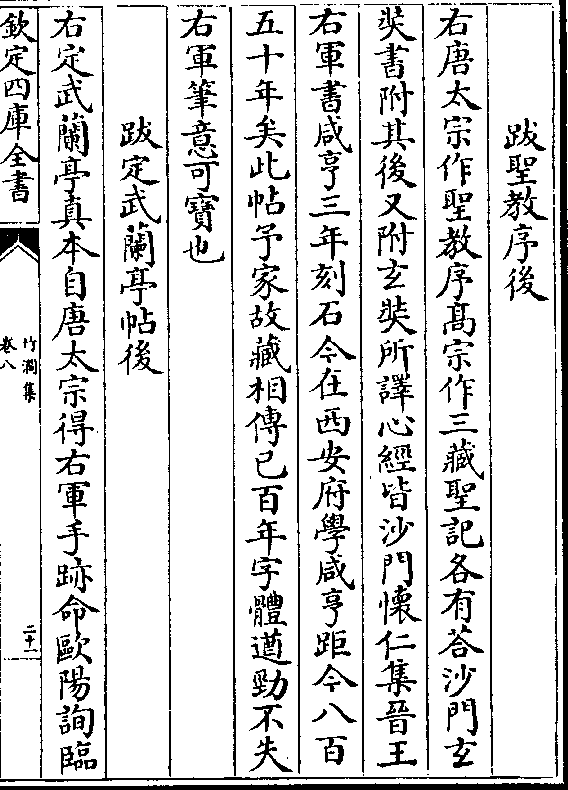 跋聖教序後
右唐太宗作聖教序髙宗作三藏聖記各有荅沙門玄
奘書附其後又附玄奘所譯心經皆沙門懷仁集晉王
右軍書咸亨三年刻石今在西安府學咸亨距今八百
五十年矣此帖予家故藏相傳已百年字體遒勁不失
右軍筆意可寳也
跋定武蘭亭帖後
右定武蘭亭真本自唐太宗得右軍手跡命歐陽詢臨
欽定四庫全書
竹澗集
卷八
二十一